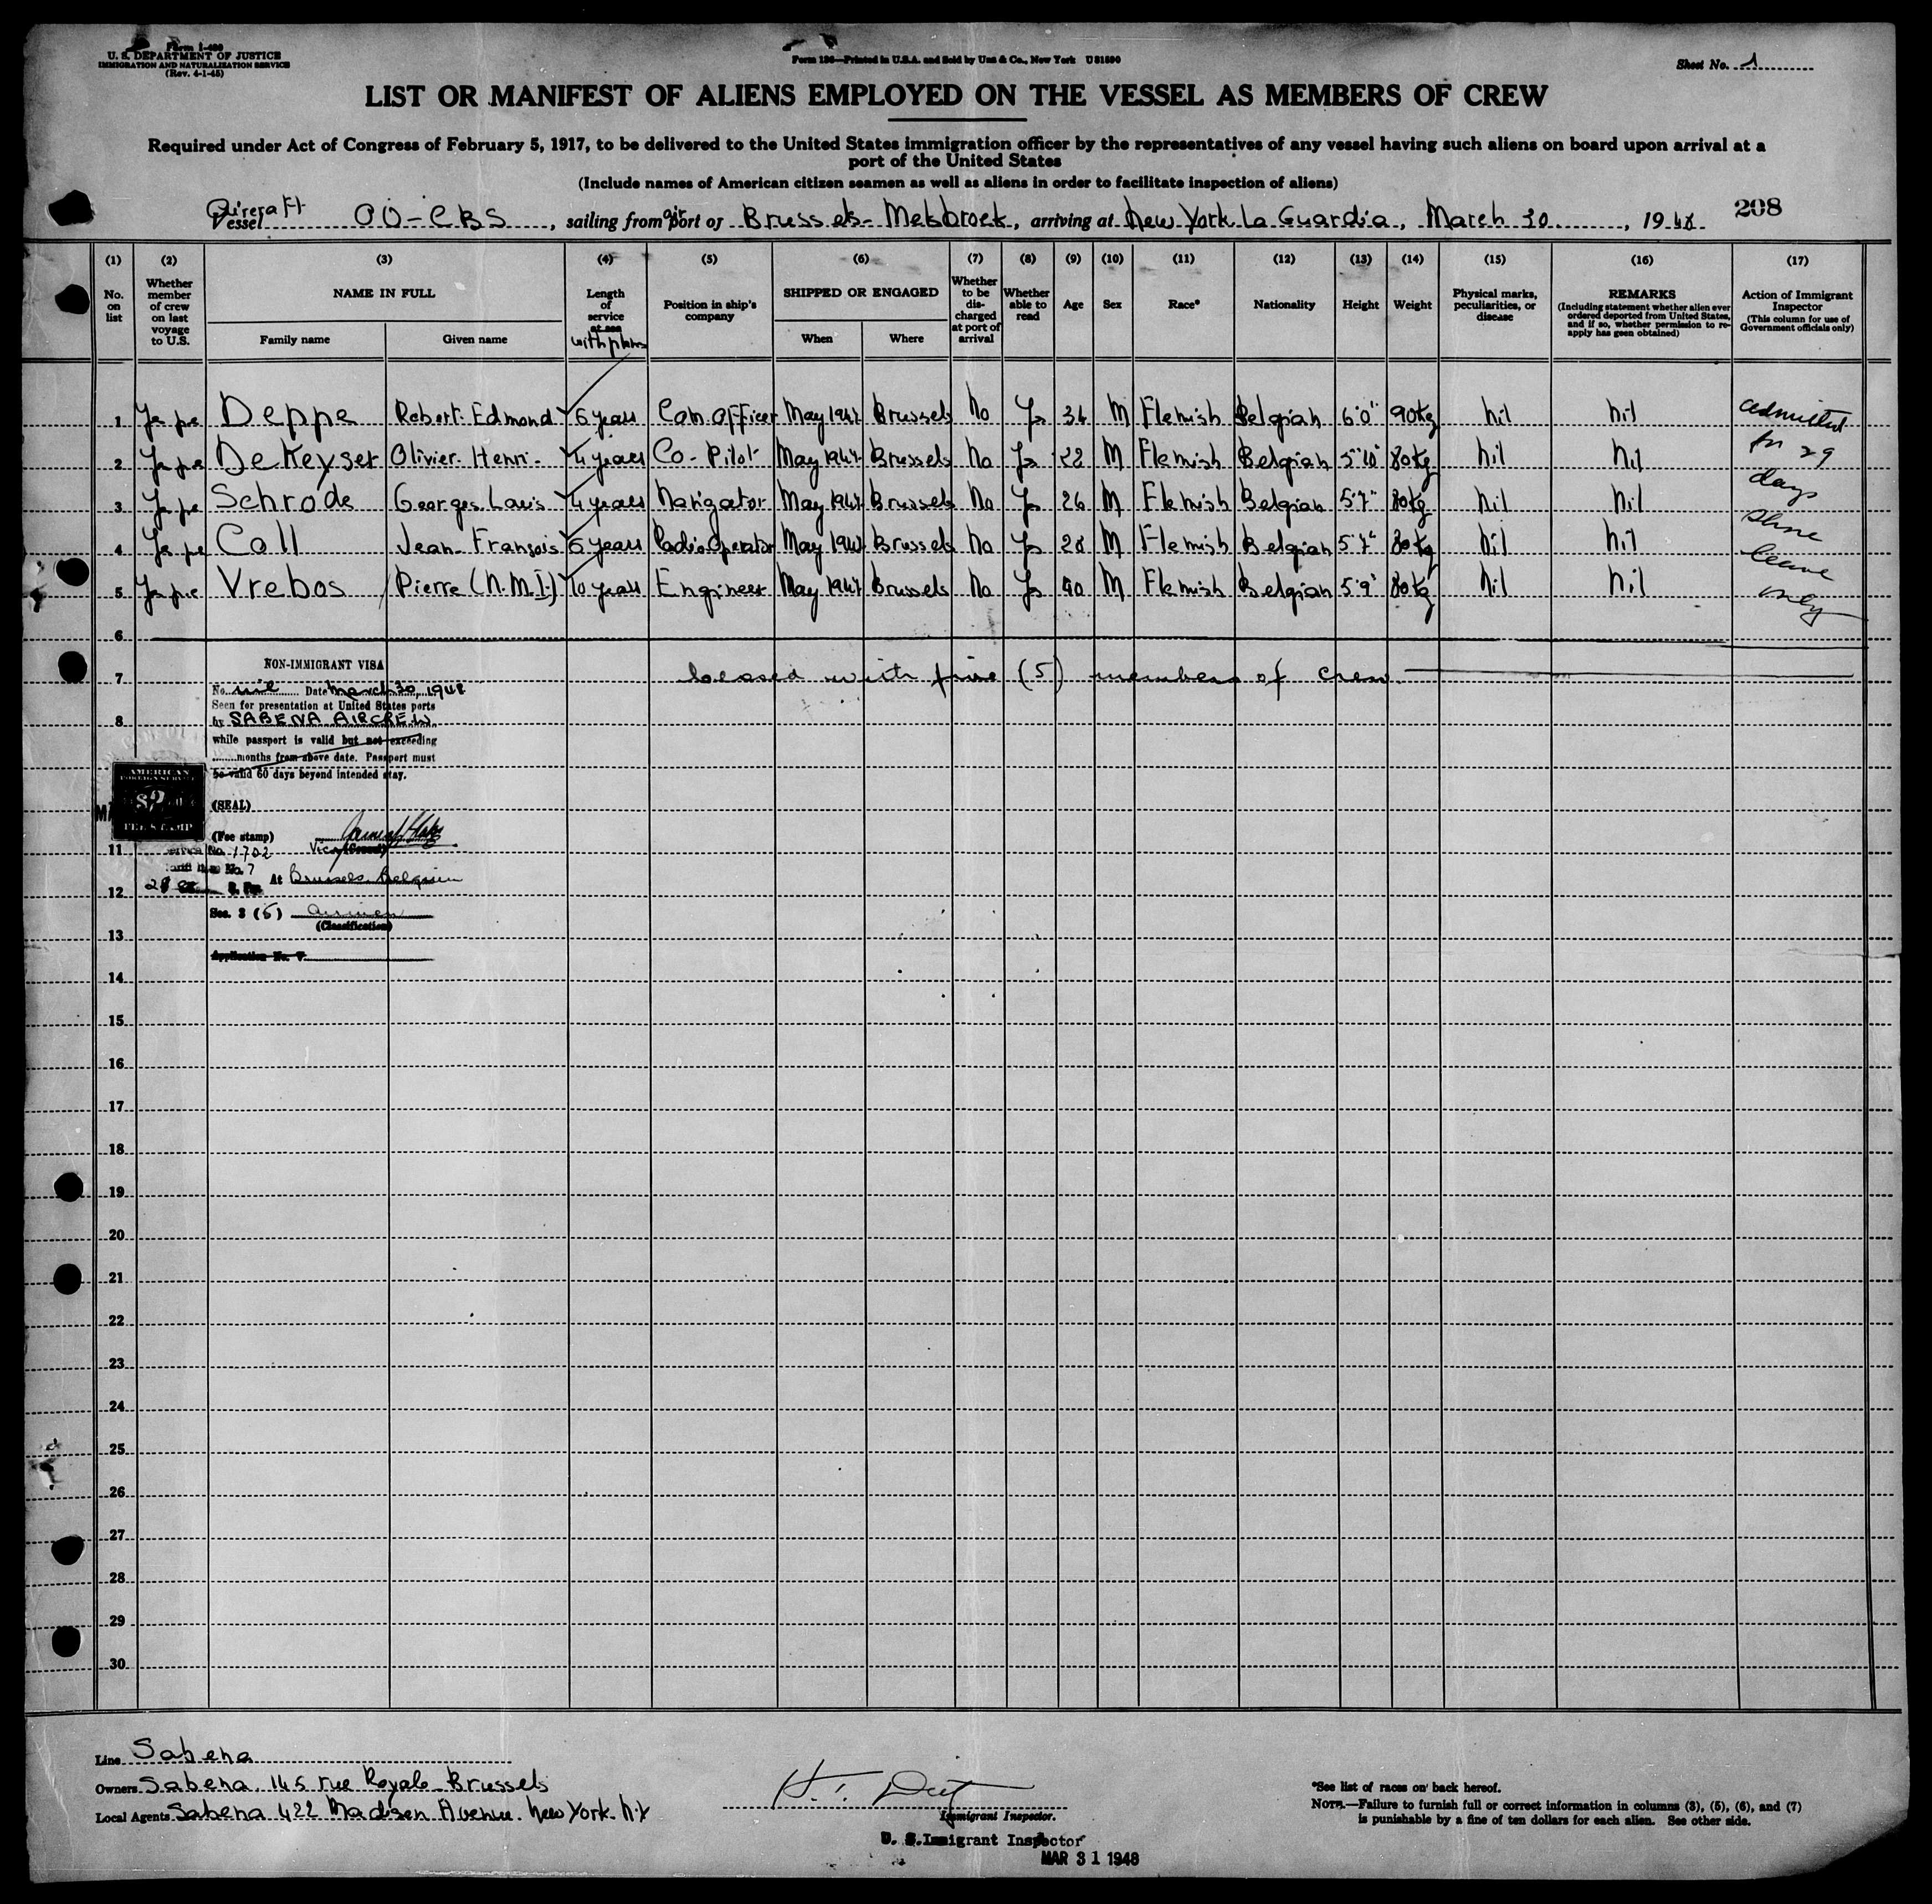 Form I-480
U. S. DEPARTMENT OF JUSTICE
IMMIGRATION AND NATURALIZATION SERVICE
(Rev. 4-1-45)
Form 136—Printed in U.S.A. and Sold by Unz & Co., New York U 81890
Sheet No. 1
LIST OR MANIFEST OF ALIENS EMPLOYED ON THE VESSEL AS MEMBERS OF CREW
Required under Act of Congress of February 5, 1917, to be delivered to the United States immigration officer by the representatives of any vessel having such aliens on board upon arrival at a
port of the United States
(Include names of American citizen seamen as well as aliens in order to facilitate inspection of aliens)
Aircraft
Vessel OO-CBS, sailing from air port of Brussels-Melsbroek, arriving at New York La Guardia, March 30, 1948 208
(1) (2) (3) (4) (5) (6) (7) (8) (9) (10) (11) (12) (13) (14) (15) (16) (17)
No. on list
Whether member of crew on last voyage to U.S.
NAME IN FULL
Family name Given name
Length of service at sea
Position in ship's company
SHIPPED OR ENGAGED
When Where
Whether to be discharged at port of arrival
Whether able to read
Age Sex Race* Nationality Height Weight
Physical marks, peculiarities, or disease
REMARKS
(Including statement whether alien ever ordered deported from United States, and if so, whether permission to reapply has geen obtained)
Action of Immigrant Inspector
(This column for use of Government officials only)
1 Deppe Robert Edmond 6 years Com. Officer May 1947 Brussels No M Flemish Belgian 6'0" 90kg nil nil admitted
2 DeKeyser Olivier Henri 4 years Co-Pilot May 1947 Brussels No M Flemish Belgian 5'10" 80kg nil nil for 29
3 Schrode Georges Louis 4 years Navigator May 1947 Brussels No 26 M Flemish Belgian 5'7" 80kg nil nil days
4 Call Jean François 6 years Radio Operator May 1947 Brussels No 28 M Flemish Belgian 5'7" 80kg nil nil shore
leave
5 Vrebos Pierre (N.M.I.) 10 years Engineer May 1947 Brussels No 40 M Flemish Belgian 5'9" 80kg nil nil only
6
7 closed with five (5) members of crew
NON-IMMIGRANT VISA
No. nil Date March 30, 1948
Seen for presentation at United States ports
8 by SABENA AIRCREW
while passport is valid but not exceeding
months from above date. Passport must
be valid 60 days beyond intended stay.
AMERICAN
FOREIGN SERVICE
FEE STAMP
(SEAL)
(Fee stamp)
11 No. 1702 Vice Consul
No. 7
12 At Brussels, Belgium
Sec. 3 (5) airmen
(Classification)
13
Application No. V
14
15
16
17
18
19
20
21
22
23
24
25
26
27
28
29
30
Line Sabena
Owners Sabena 145 rue Royale Brussels
Local Agents Sabena 422 Madison Avenue New York. N.Y
Immigrant Inspector.
U. S. Immigrant Inspector
MAR 31 1948
*See list of races on back hereof.
NOTE.—Failure to furnish full or correct information in columns (3), (5), (6), and (7)
is punishable by a fine of ten dollars for each alien. See other side.